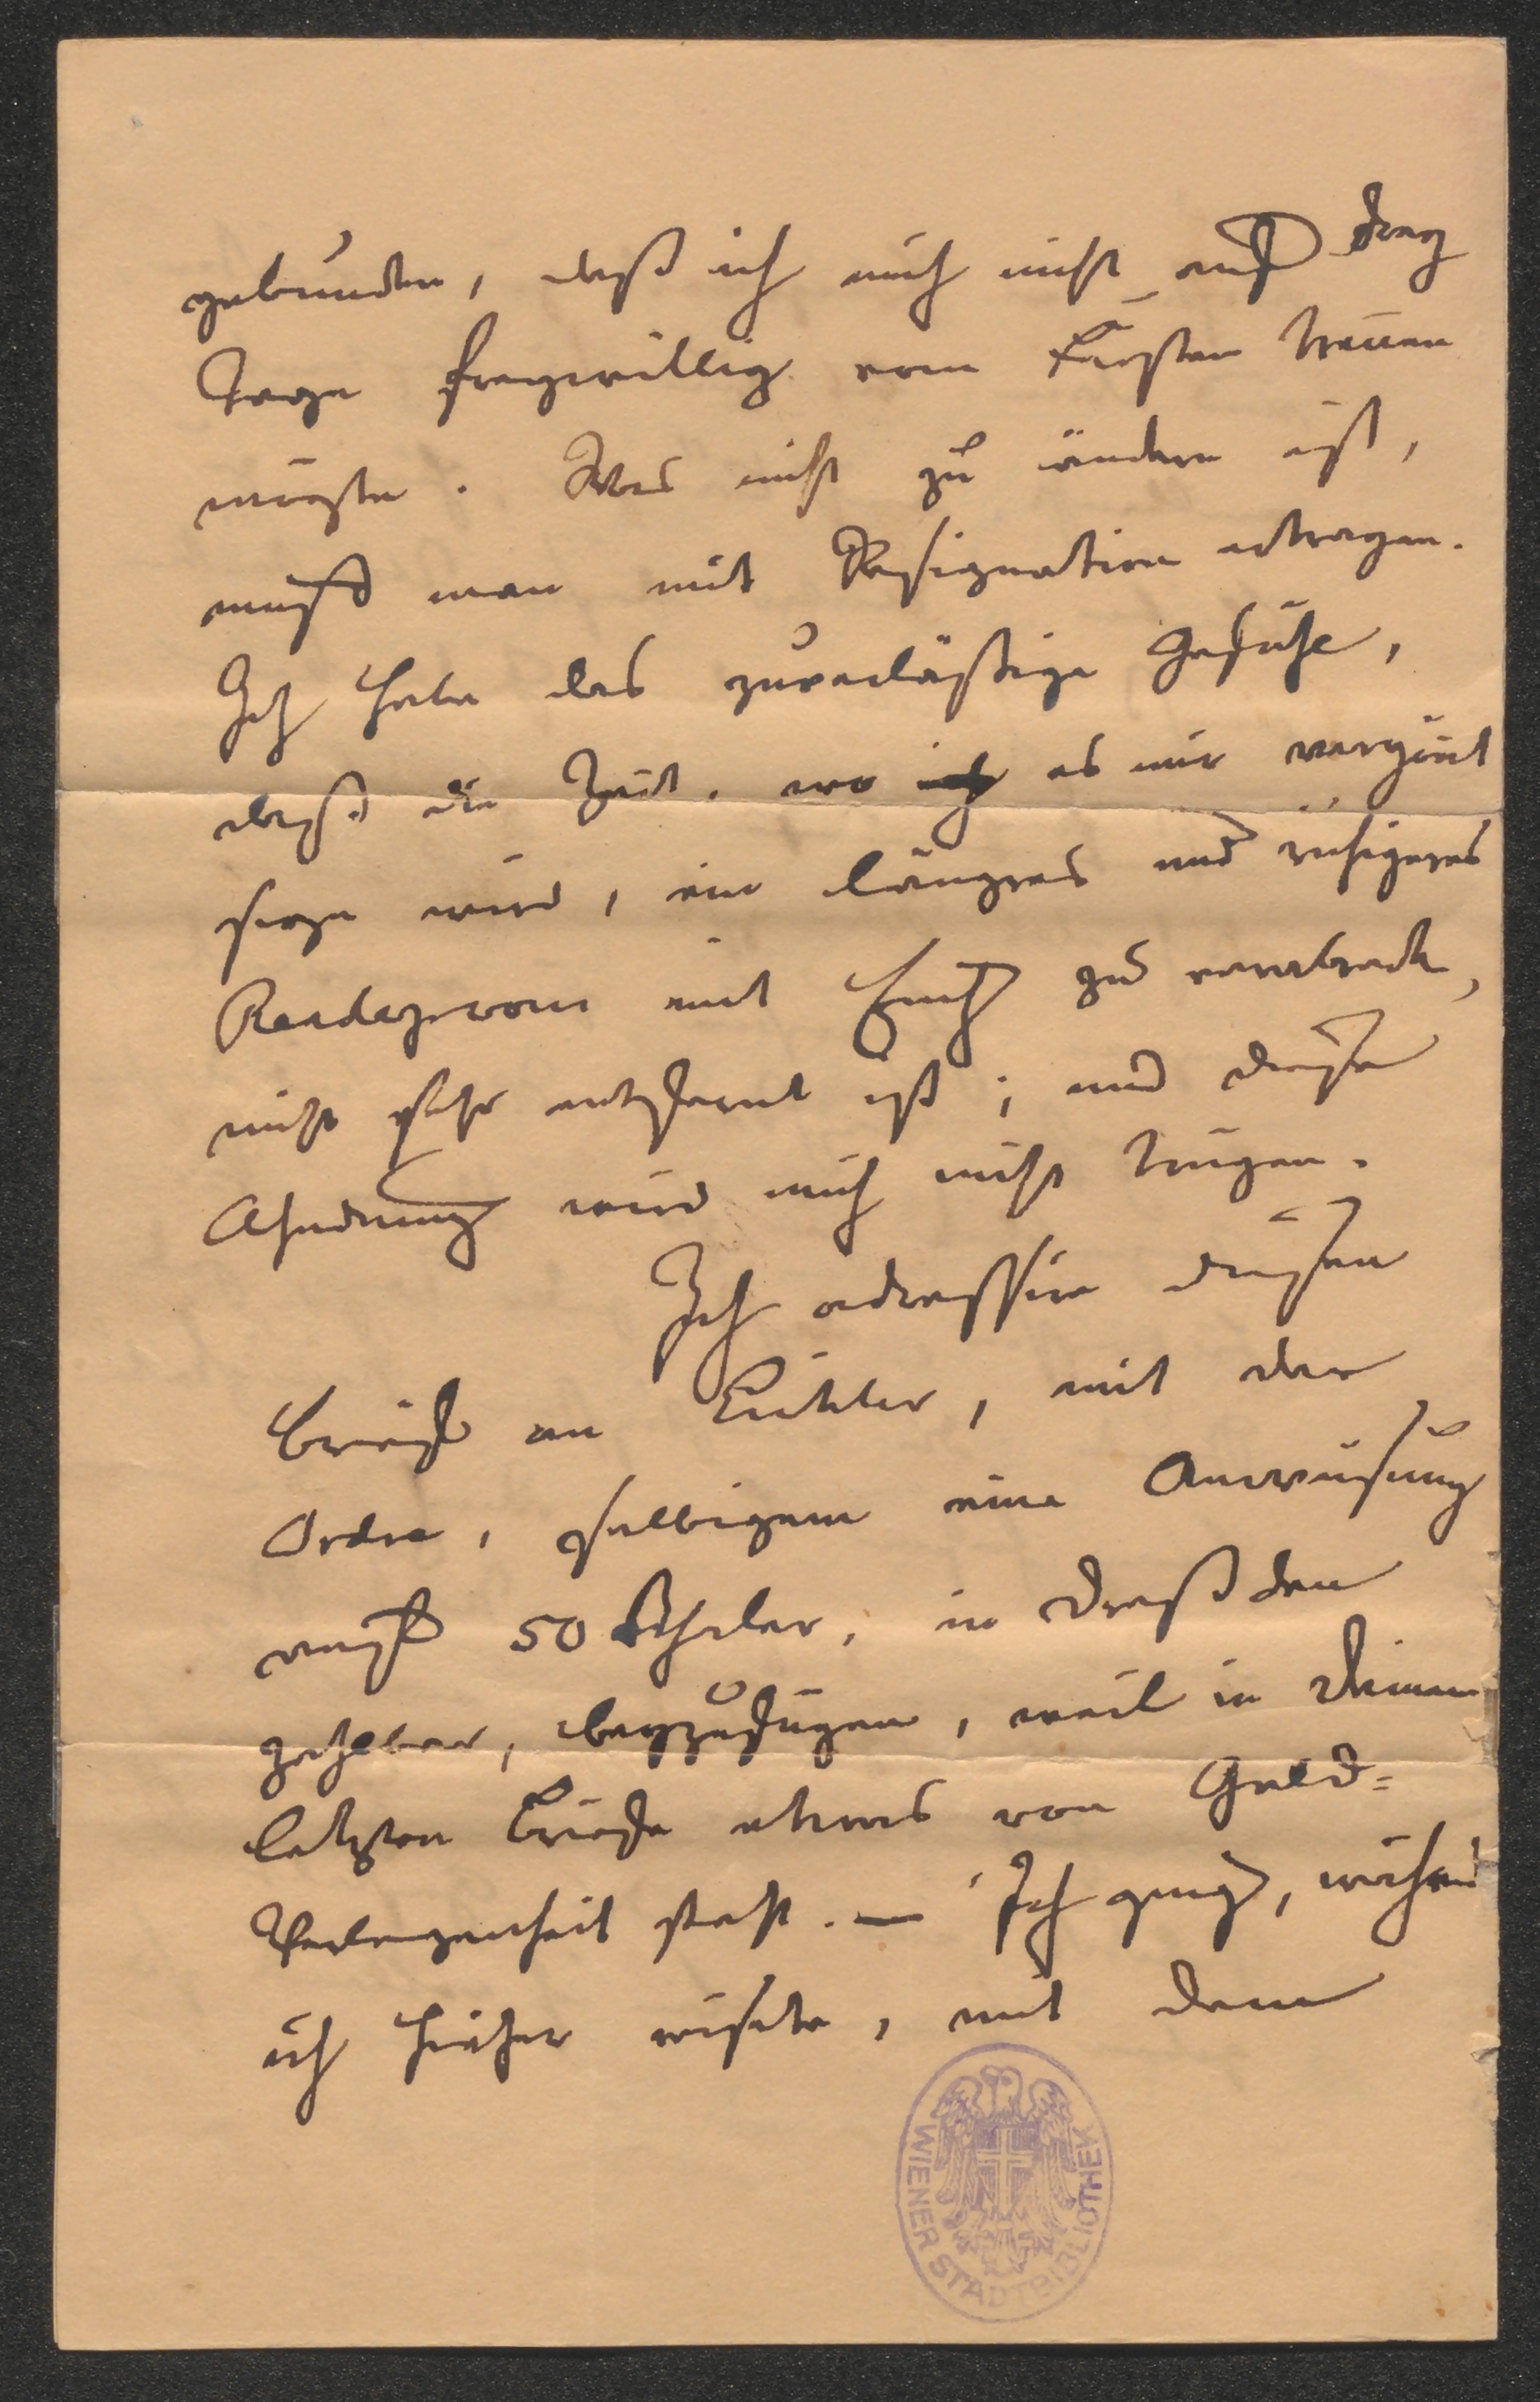 gebunden, daß ich mich nicht auf drey
Tage freywillig vom Fürsten trennen
mögte. Was nicht zu ändern ist,
muß man mit Resignation ertragen.
Ich habe das zuverläßige Gefühl,
daß die Zeit, wo es mir vergönt
seyn wird, ein längres und ruhigeres
Rendezvous mit Euch zu verabreden,
nicht sehr entfernt ist; und diese
Ahndung wird mich nicht trügen.
Ich adressire diesen
Brief an, mit der
Ordre, selbigem eine Anweisung
auf 50 Thaler, in Dreßden
zahlbar, beyzufügen, weil in Deinem
letzten Briefe etwas von Geld-
Verlegenheit steht. — Ich ging, während
ich hieher reiste, mit dem
WIENER STADTBIBLIOTHEK